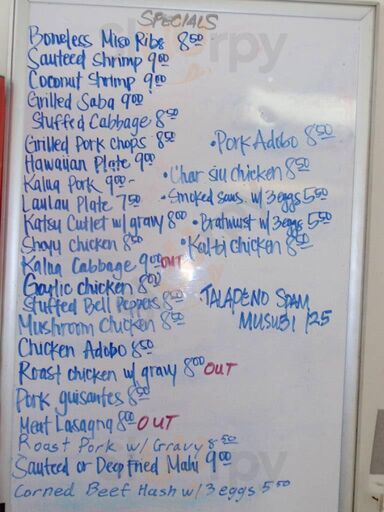 SPECIALS
Boneless Miso Ribs 8.50
Sauteed Shrimp 9.00
Coconut Shrimp 9.00
Grilled Saba 9.00
Stuffed Cabbage 8.50
Grilled Pork Chops 8.50
Hawaiian Plate 9.00
Kalua Pork 9.00-
Laulau Plate 7.50
Katsu Cutlet w/ gravy 8.00
Shoyu chicken 8.50
Kalua Cabbage 9.00 OUT
Garlic chicken 8.00
Stuffed Bell Peppers 8.50
Mushroom Chicken 8.50
Chicken Adobo 8.50
Roast chicken w/ gravy 8.00 OUT
Pork guisantes 8.50
Meat Lasagna 8.00 OUT
Roast Pork w/ Gravy 8.50
Sauteed or Deep fried Mahi 9.00
Corned Beef Hash w/ 3 eggs 5.50
• Pork Adobo 8.50
• Char Siu Chicken 8.50
• Smoked saus. w/ 3 eggs 5.50
• Bratwurst w/ 3 eggs 5.50
• Kalbi chicken 8.50
JALAPENO SPAM
MUSUBI 1.25